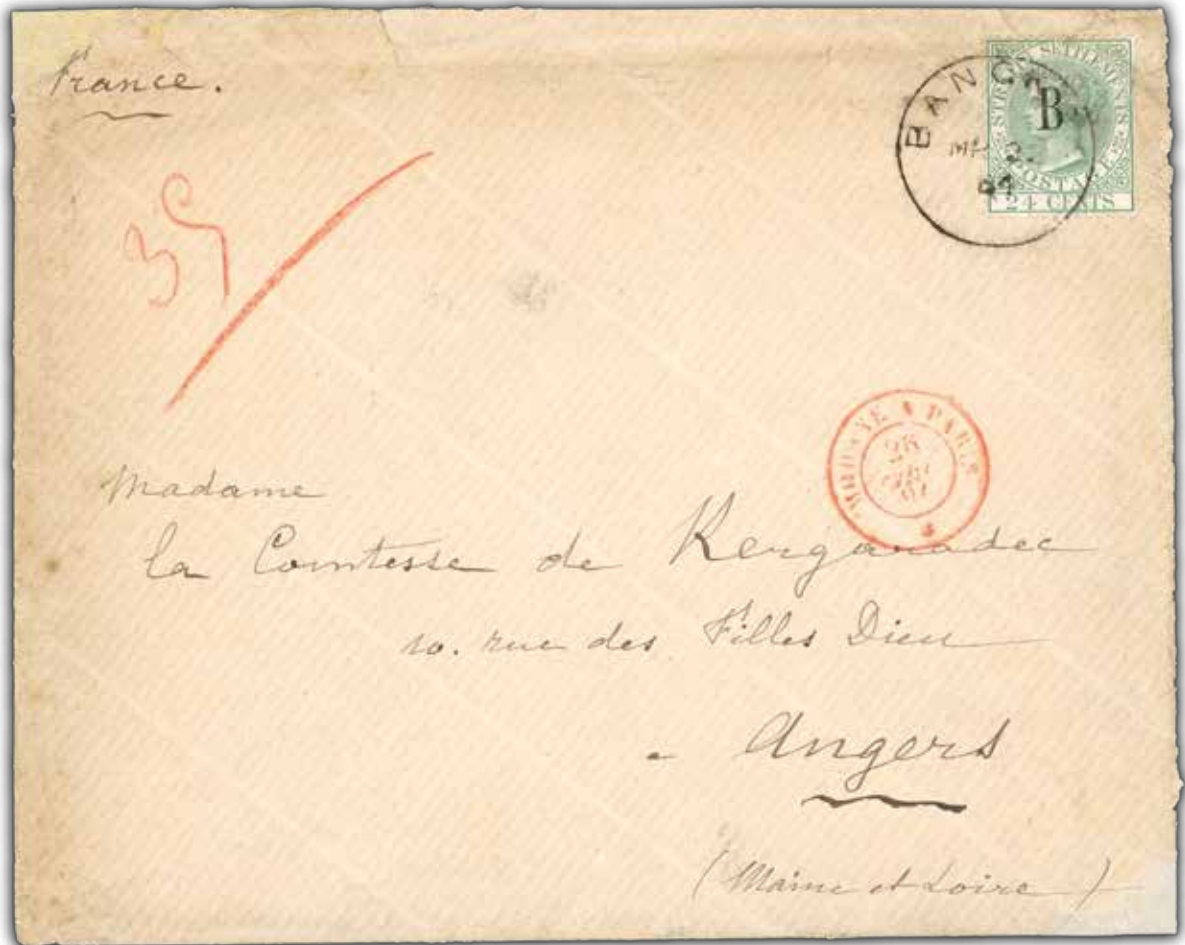 France.
STRAITS SETTLEMENTS
B
POSTAGE
24 CENTS
BANGKOK
84
35
MODANE A PARIS
Madame
la Comtesse de Kergaradec
10. rue des Filles Dieu
Angers
(Maine et Loire)